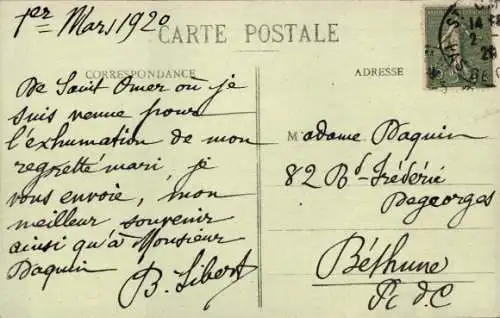 1er Mars 1920
CARTE POSTALE
CORRESPONDANCE
ADRESSE
De Saint Omer où je
suis venue pour
l'exhumation de mon
regretté mari, je
vous envoie, mon
meilleur souvenir
ainsi qu'à Monsieur
Daquin
B. Libert
Madame Daquin
82 Bd Frédéric
Degeorges
Béthune
P. d. C